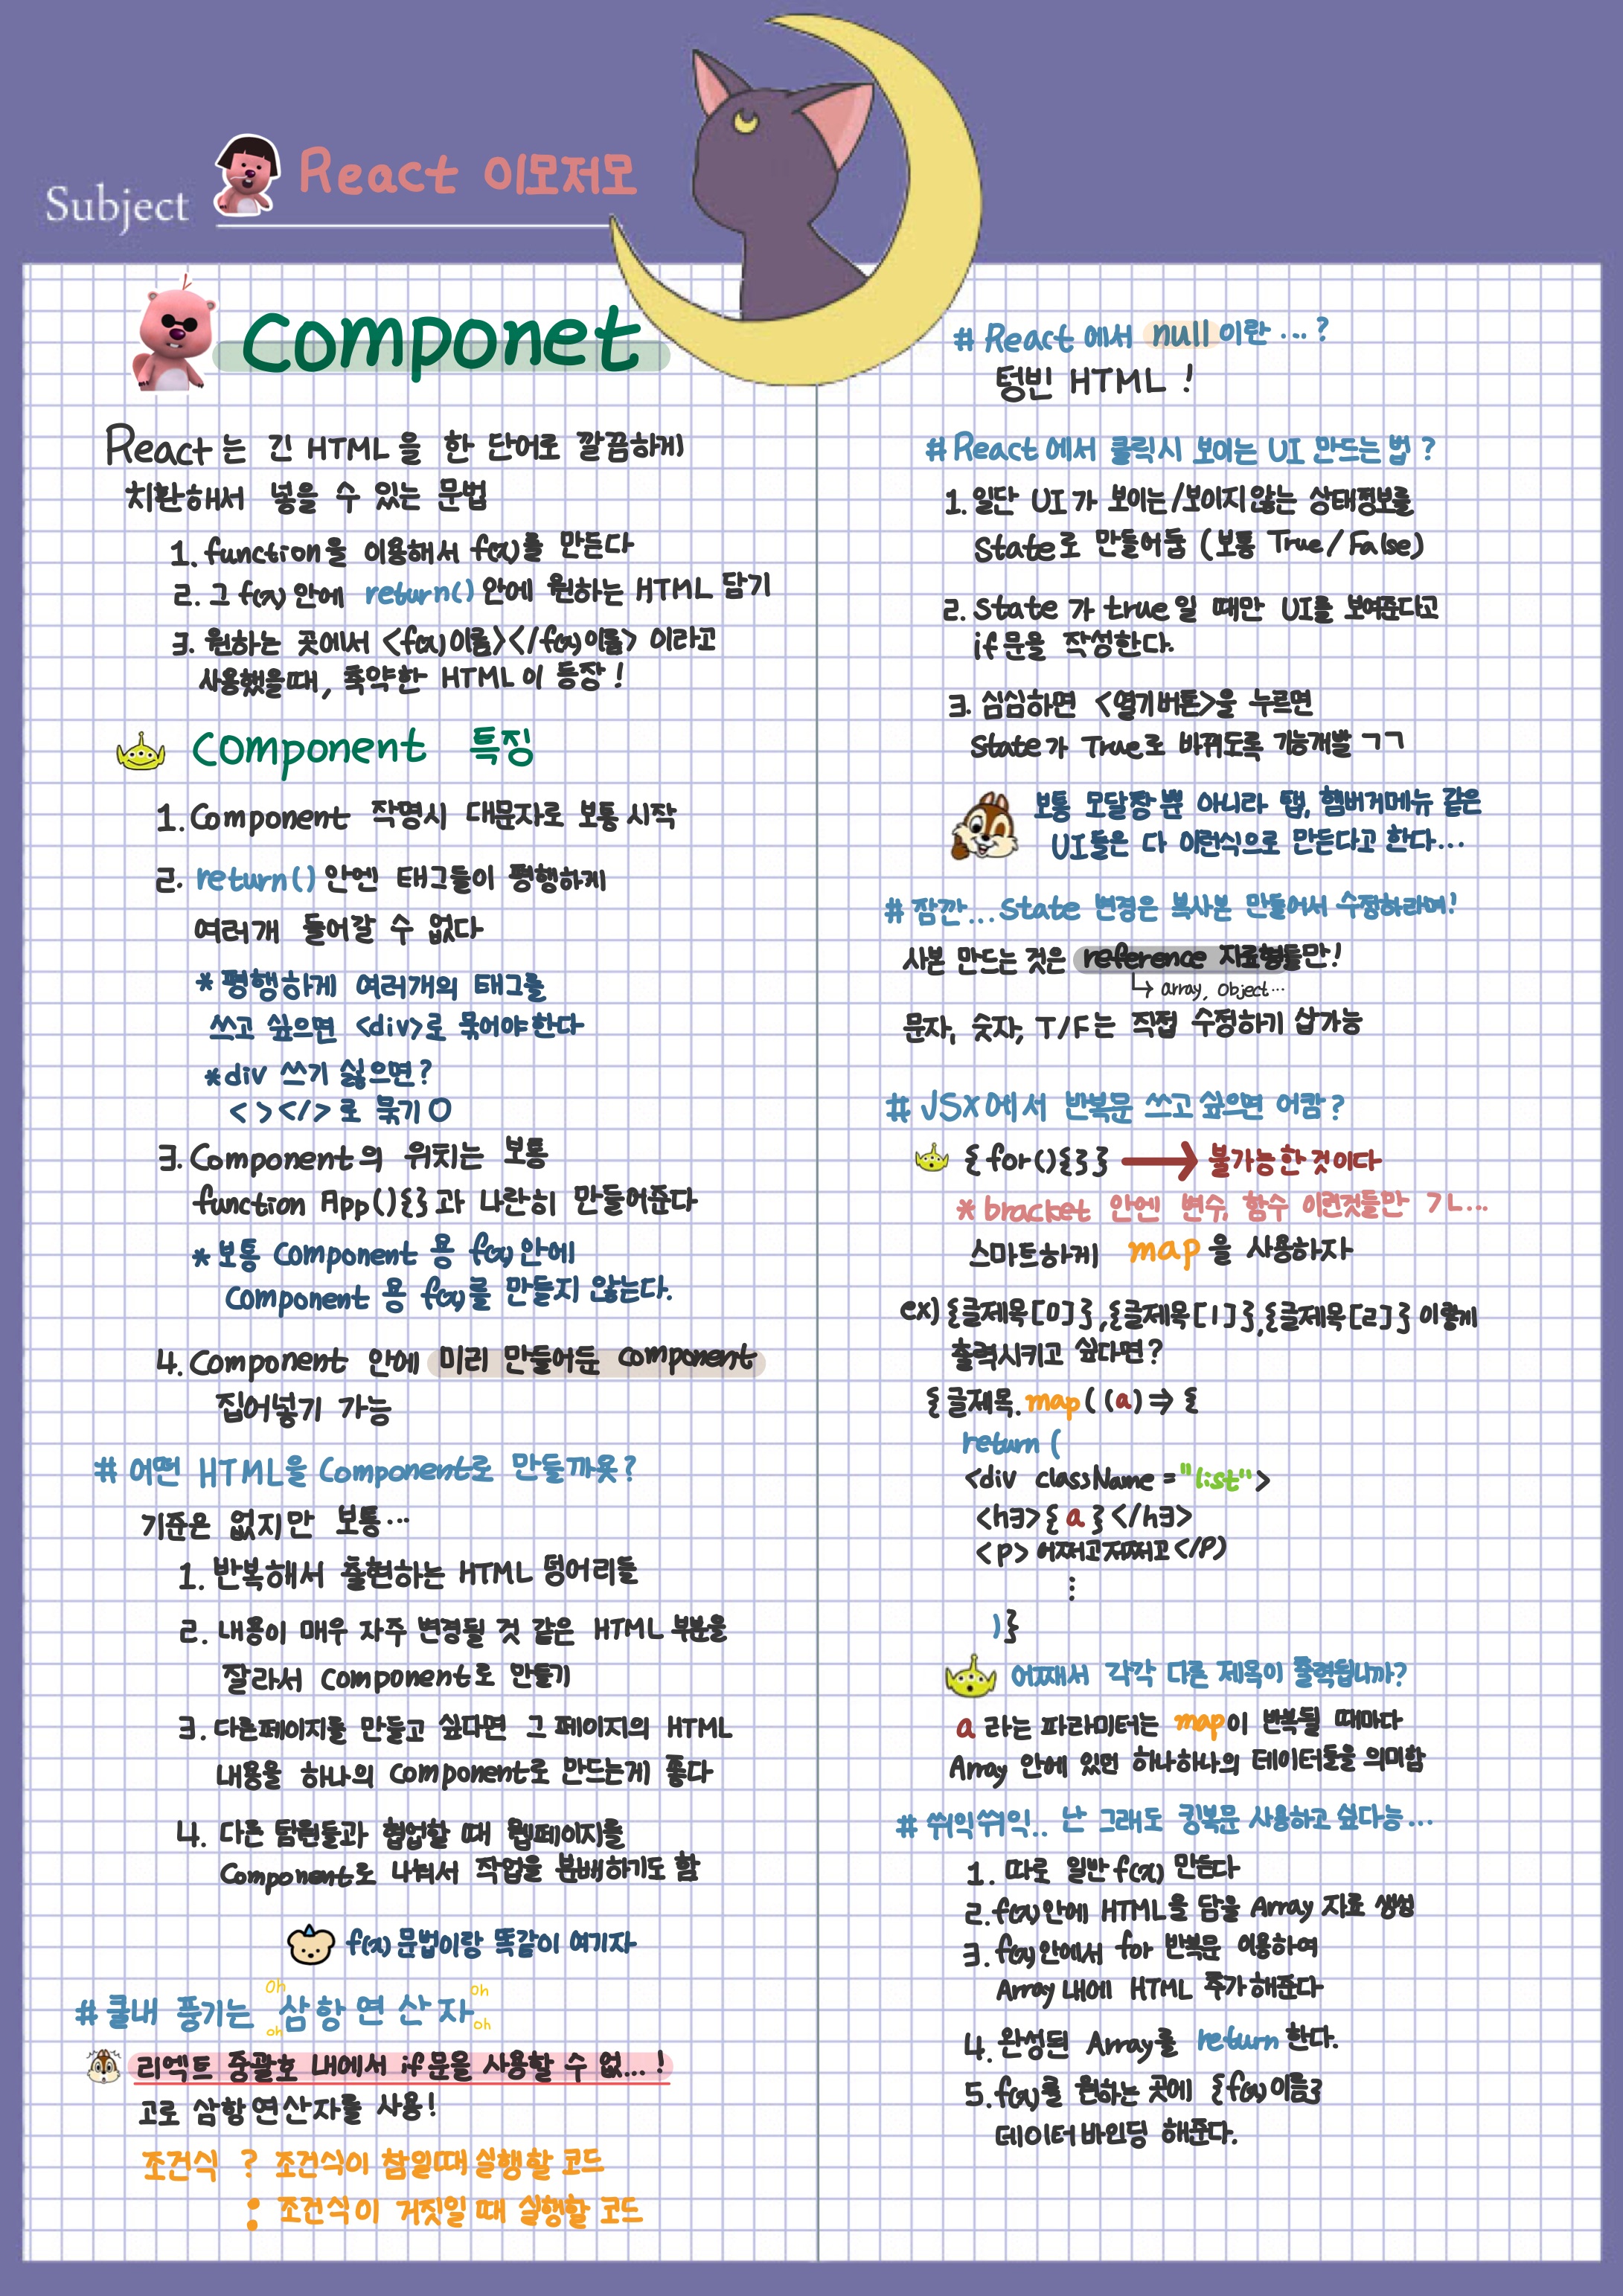 Subject
React 이모저모
Componet
React는 긴 HTML을 한 단어로 깔끔하게
치환해서 넣을 수 있는 문법
1. function을 이용해서 f(x)를 만든다
2. 그 f(x) 안에 return() 안에 원하는 HTML 담기
3. 원하는 곳에서 <f(x)이름></f(x)이름> 이라고
사용했을때, 축약한 HTML이 등장!
Component 특징
1. Component 작명시 대문자로 보통 시작
2. return() 안엔 태그들이 평행하게
여러개 들어갈 수 없다
* 평행하게 여러개의 태그를
쓰고 싶으면 <div>로 묶어야한다
* div 쓰기 싫으면?
< ></>로 묶기 O
3. Component의 위치는 보통
function App(){}과 나란히 만들어준다
* 보통 Component 용 f(x)안에
Component 용 f(x)를 만들지 않는다.
4. Component 안에 미리 만들어둔 component
집어넣기 가능
# 어떤 HTML을 Component로 만들까욧?
기준은 없지만 보통...
1. 반복해서 출현하는 HTML 덩어리들
2. 내용이 매우 자주 변경될 것 같은 HTML 부분을
잘라서 Component로 만들기
3. 다른페이지를 만들고 싶다면 그 페이지의 HTML
내용을 하나의 Component로 만드는게 좋다
4. 다른 팀원들과 협업할 때 웹페이지를
Component로 나눠서 작업을 분배하기도 함
f(x) 문법이랑 똑같이 여기자
oh oh
# 쿨내 풍기는 삼항연산자
oh oh
리엑트 중괄호 내에서 if문을 사용할 수 없...!
고로 삼항연산자를 사용!
조건식 ? 조건식이 참일때 실행할 코드
: 조건식이 거짓일 때 실행할 코드
# React에서 null이란 ...?
텅빈 HTML!
# React에서 클릭시 보이는 UI 만드는 법?
1. 일단 UI가 보이는/보이지않는 상태정보를
State로 만들어둠 (보통 True/False)
2. State가 true일 때만 UI를 보여준다고
if문을 작성한다.
3. 심심하면 <열기버튼>을 누르면
State가 True로 바뀌도록 기능개발 ㄱㄱ
보통 모달창 뿐 아니라 탭, 햄버거메뉴 같은
UI들은 다 이런식으로 만든다고 한다...
# 잠깐... State 변경은 복사본 만들어서 수정하라며!
사본 만드는 것은 reference 자료형들만!
↳ array, Object...
문자, 숫자, T/F는 직접 수정하기 쌉가능
# JSX에서 반복문 쓰고 싶으면 어캄?
{for(){}} → 불가능한 것이다
* bracket 안엔 변수, 함수 이런것들만 ㄱㄴ...
스마트하게 map을 사용하자
ex) {글제목[0]}, {글제목[1]}, {글제목[2]} 이렇게
출력시키고 싶다면?
{글제목.map((a)⇒{
return (
<div className="list">
<h3>{a}</h3>
<p>어쩌고저쩌고</p>
⋮
)}
어째서 각각 다른 제목이 출력됩니까?
a라는 파라미터는 map이 반복될 때마다
Array 안에 있던 하나하나의 데이터들을 의미함
# 쒸익쒸익.. 난 그래도 킹복문 사용하고 싶다능...
1. 따로 일반 f(x) 만든다
2. f(x)안에 HTML을 담을 Array 자료 생성
3. f(x)안에서 for 반복문 이용하여
Array 내에 HTML 추가해준다
4. 완성된 Array를 return 한다.
5. f(x)를 원하는 곳에 {f(x)이름}
데이터바인딩 해준다.